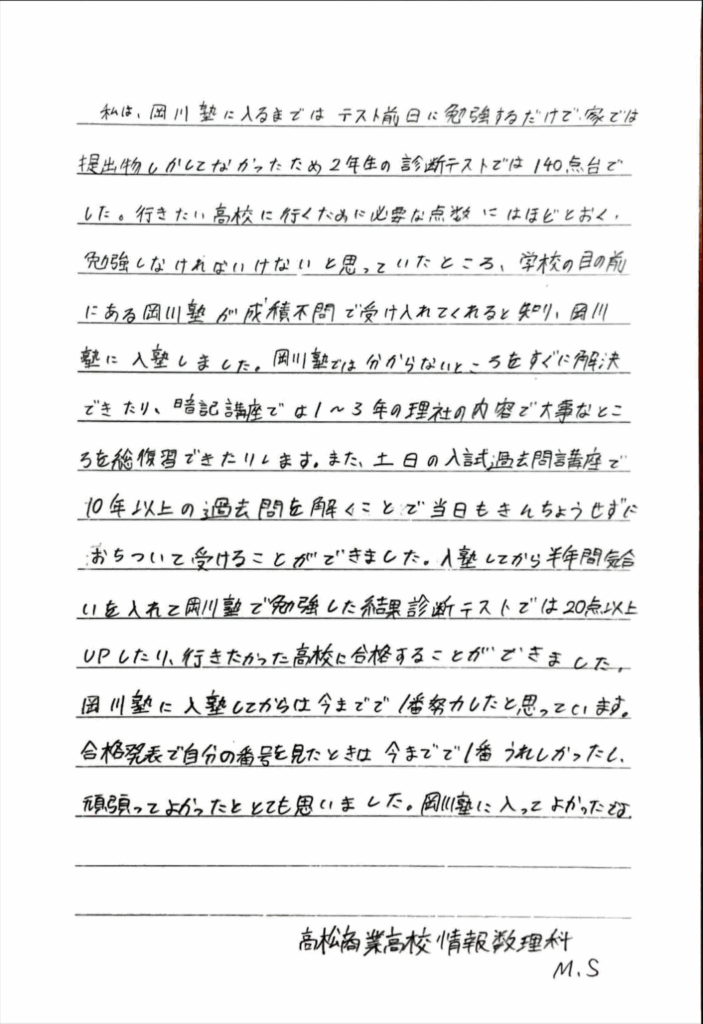 私は、岡川塾に入るまでは テスト前日に勉強するだけで、家では
提出物しかしてなかったため2年生の診断テストでは140点台で
した。行きたい高校に行くために必要な点数にはほどとおく、
勉強しなければいけないと思っていたところ、学校の目の前
にある岡川塾が成績不問で受け入れてくれると知り、岡川
塾に入塾しました。岡川塾では分からないところをすぐに解決
できたり、暗記講座では1〜3年の理社の内容で大事なとこ
ろを総復習できたりします。また、土日の入試過去問講座で
10年以上の過去問を解くことで当日もきんちょうせずに
おちついて受けることができました。入塾してから半年間気合
いを入れて岡川塾で勉強した結果診断テストでは20点以上
UPしたり、行きたかった高校に合格することができました。
岡川塾に入塾してからは今までで1番努力したと思っています。
合格発表で自分の番号を見たときは今までで1番うれしかったし、
頑張ってよかったととても思いました。岡川塾に入ってよかったです。
高松商業高校情報数理科
M.S